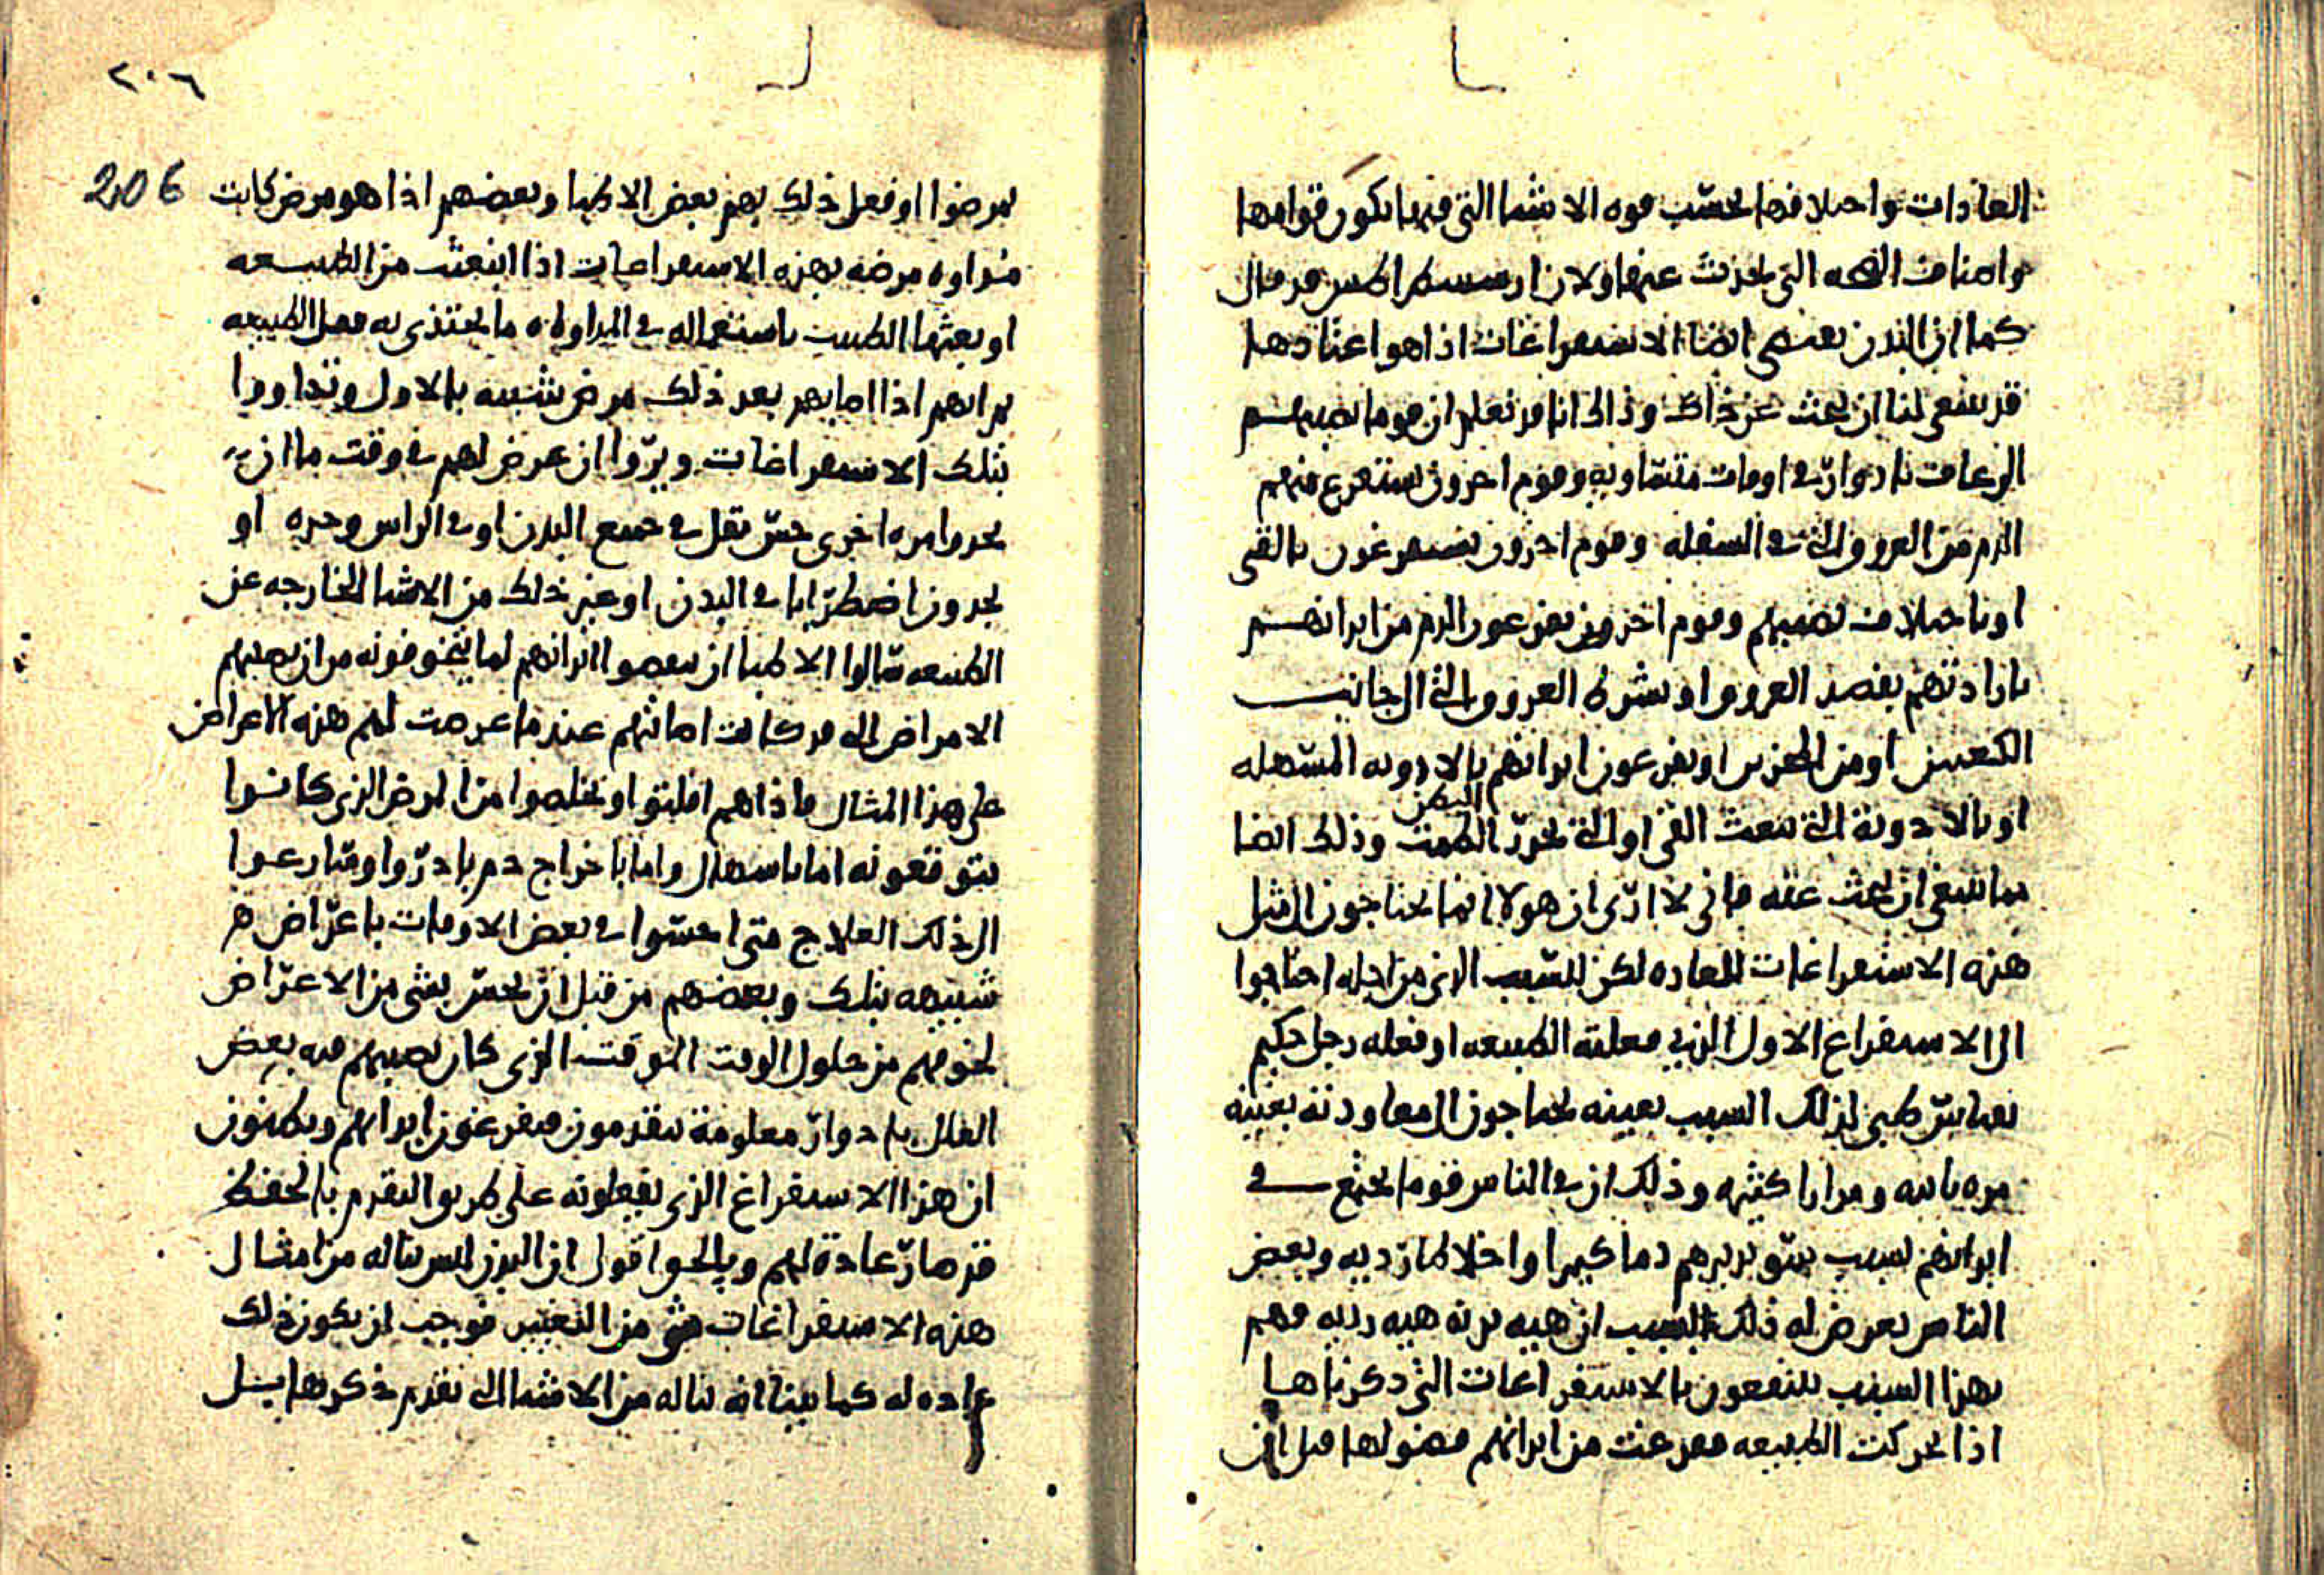 العادات واختلافها بحسب قوه الاشيا التي فيها يكون قوامها
واصناف الصحه التي تحدث عنها ولان ارسسطراطس قد قال
كما ان البدن يقتضي ايضا الاستفراغات اذا هو اعتادها
قد ينبغي لنا ان نبحث عن ذلك وذلك انا قد نعلم ان قوما يصيبهم
الرعاف بادوار في اوقات متساويه وقوم اخرون يستفرغ منهم
الدم من العروق التي في السفله وقوم اخرون يستفرغون بالقي
او باختلاف يصيبهم وقوم اخرون يفرغون الدم من ابدانهم
بارادتهم بفصد العروق او بشرط العروق التي الى جانب
الكعبين او من المنخرين او يفرغون ابدانهم بالادويه المسهله
البطن
او بالادوية التي تبعث القي او التي تحدر الطمث وذلك ايضا
مما ينبغي ان نبحث عنه فاني لا ارى ان هولا انما يحتاجون الى مثل
هذه الاستفراغات للعاده لكن للسبب الذي من اجله احتاجوا
الى الاستفراغ الاول الذي فعلته الطبيعه او فعله رجل حكيم
بقياس طبي لذلك السبب بعينه يحتاجون الى معاودته بعينه
مره ثانيه ومرارا كثيره وذلك ان في الناس قوما يجتمع في
ابدانهم بسبب سو تدبيرهم دما كثيرا واخلاطا رديه وبعض
الناس يعرض له ذلك بسبب ان هيه بدنه هيه رديه فهم
بهذا السبب ينتفعون بالاستفراغات التي ذكرناها
اذا تحركت الطبيعه ففرغت من ابدانهم فضولها قبل ان
٢٠٦
206
يمرضوا او فعل ذلك بهم بعض الاطبا وبعضهم اذا هو مرض كانت
مداوه مرضه بهذه الاستفراغات اذا انبعثت من الطبيعه
او بعثها الطبيب باستعماله في المداواه ما يحتذي به فعل الطبيعه
ثم انهم اذا اصابهم بعد ذلك مرض شبيه بالاول وتداووا
بتلك الاستفراغات وبروا ان عرض لهم في وقت ما ان
يجدوا مره اخرى حس ثقل في جميع البدن او في الراس وحده او
يجدون اضطرابا في البدن او غير ذلك من الاشيا الخارجه عن
الطبيعه سالوا الاطبا ان ينقصوا ابدانهم لما يتخوفونه من ان يصيبهم
الامراض التي قد كانت اصابتهم عندما عرضت لهم هذه الاعراض
على هذا المثال فاذا هم افلتوا وتخلصوا من المرض الذي كانوا
يتوقعونه اما باسهال واما باخراج دم بادروا وسارعوا
الى ذلك العلاج متى احسوا في بعض الاوقات باعراض هي
شبيهه بتلك وبعضهم من قبل ان يحس بشي من الاعراض
لخوفهم من حلول الوقت الموقت الذي كان يصيبهم فيه بعض
العلل بادوار معلومة يتقدمون فيفرغون ابدانهم ويظنون
ان هذا الاستفراغ الذي يفعلونه على طريق التقدم بالحفظ
قد صار عادة لهم وبالحق اقول ان البدن ليس يناله من امثال
هذه الاستفراغات شي من التغيير فوجب ان يكون ذلك
عاده له كما بينا انه يناله من الاشيا التي تقدم ذكرها